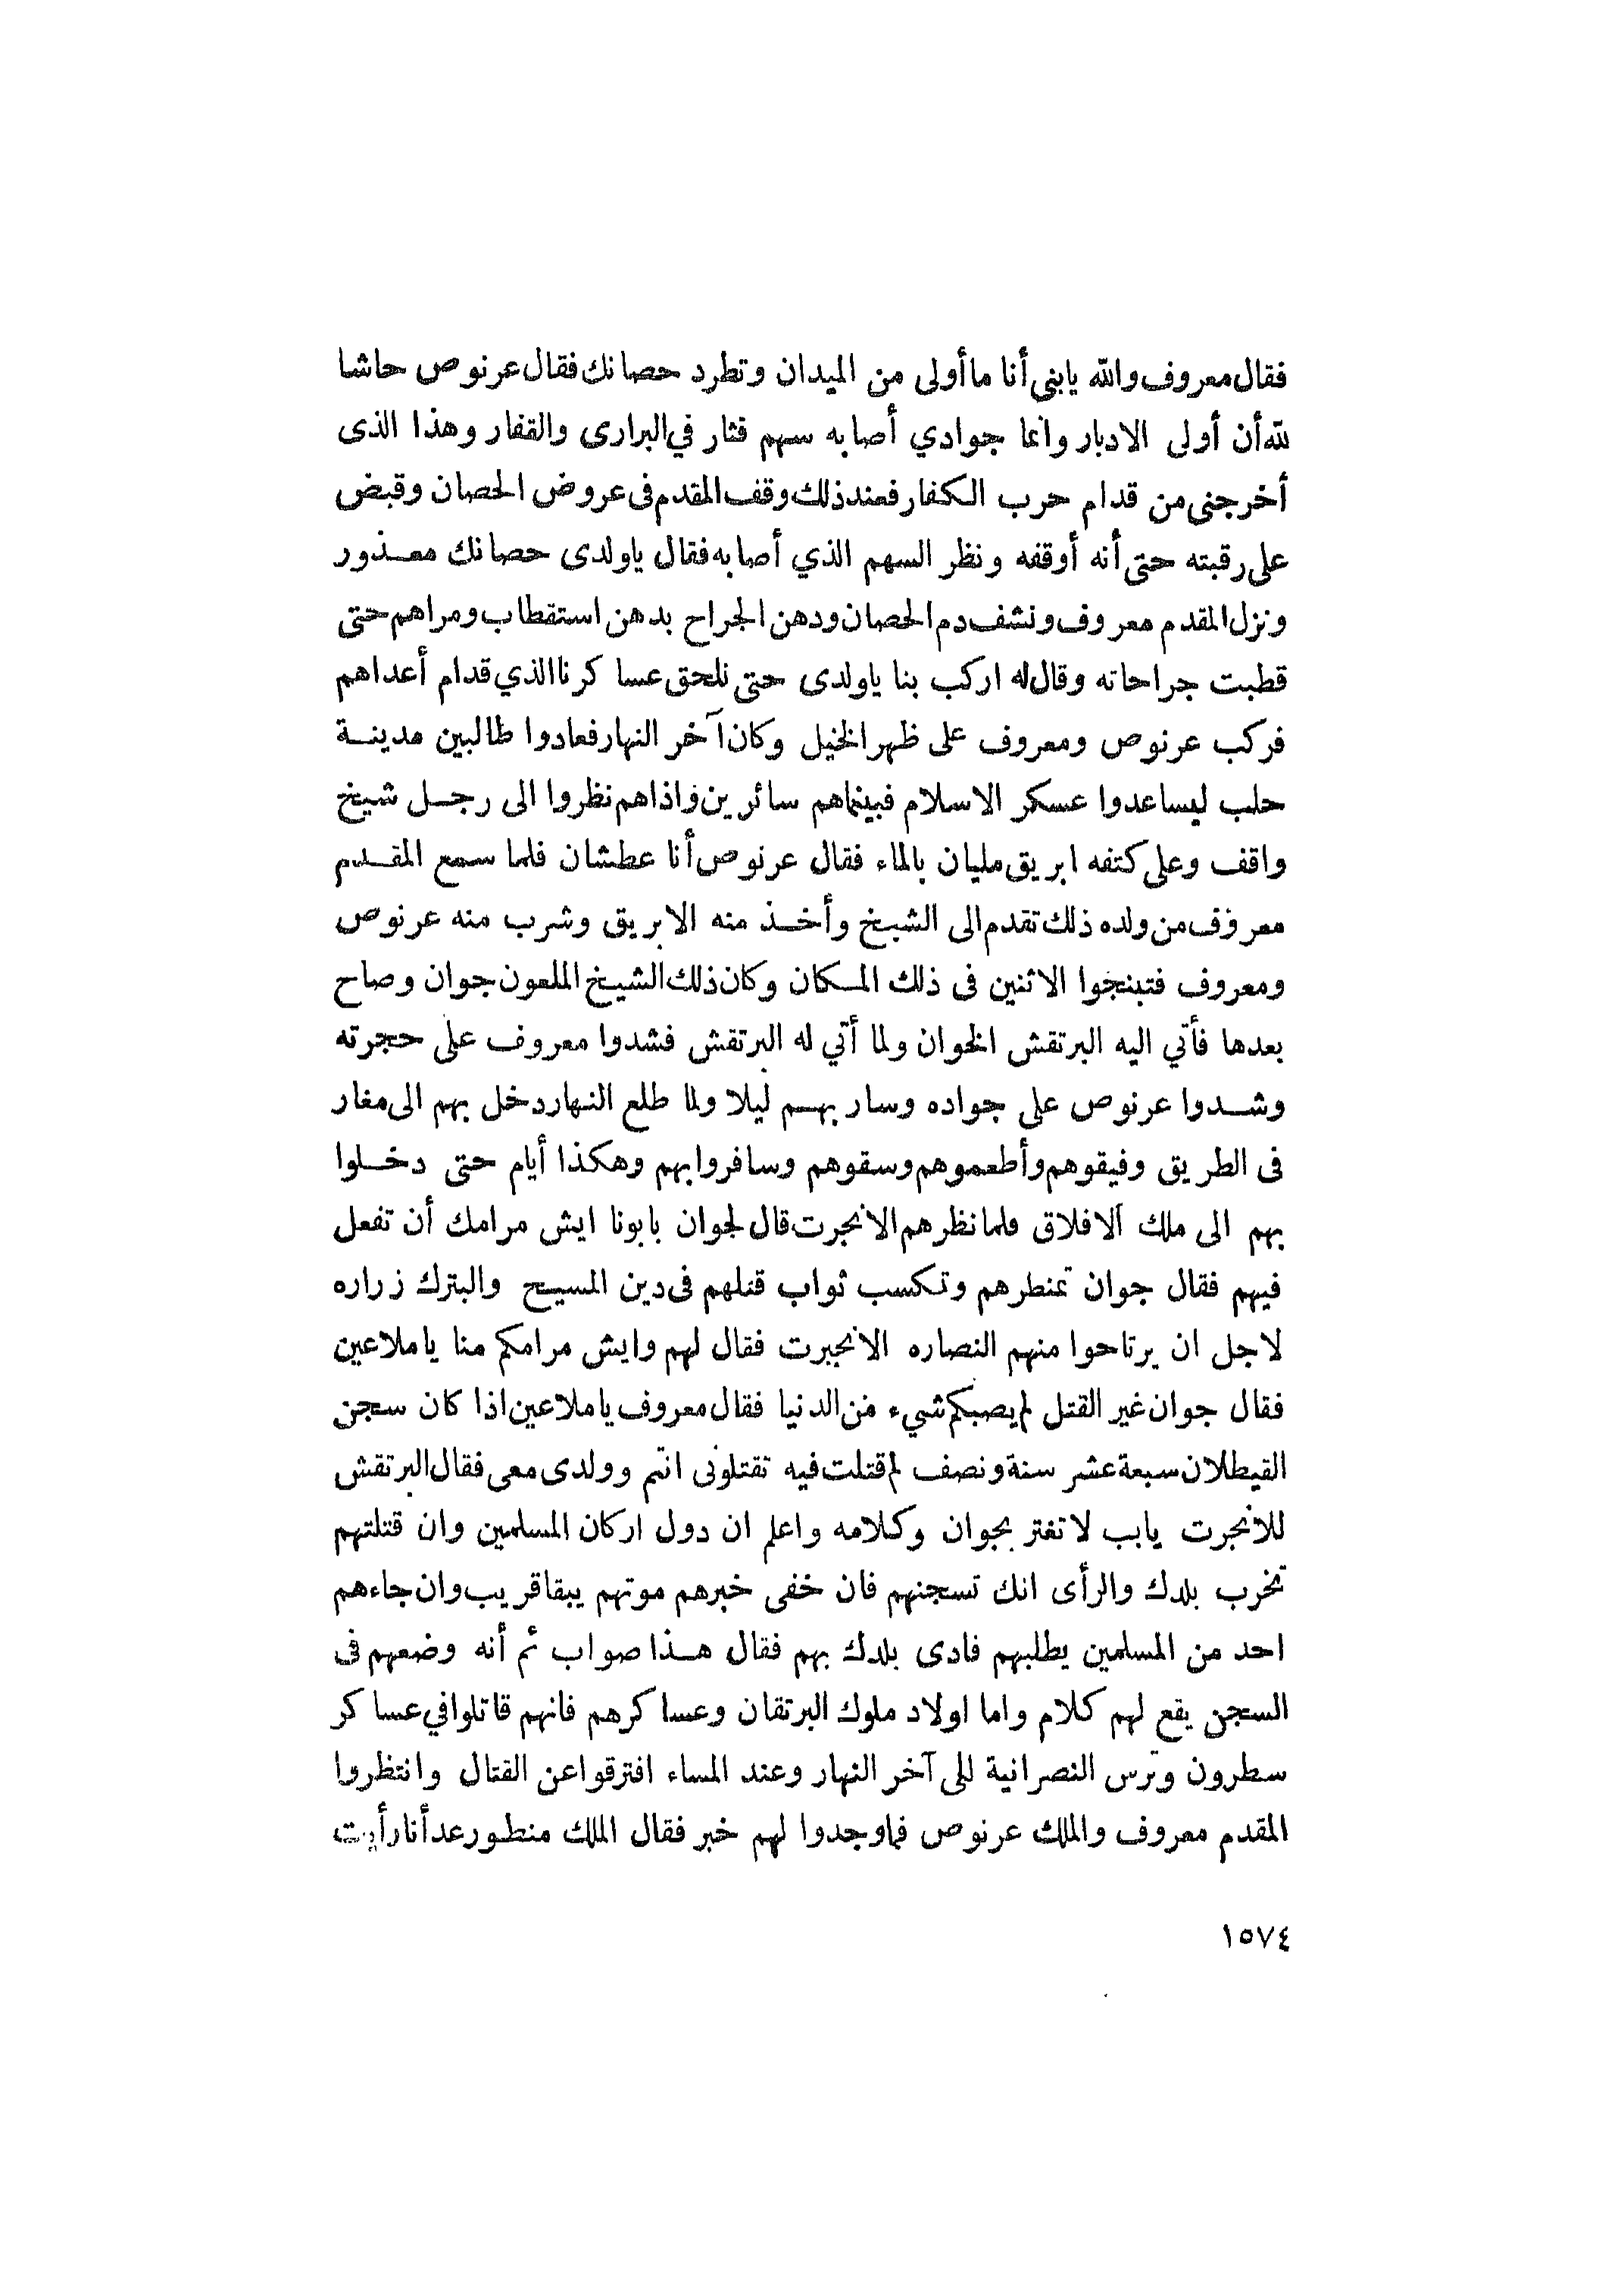 فقال معروف والله يابنى أنا ما أولى من الميدان وتطرد حصانك فقال عرنوص حاشا
لله أن أولى الادبار وانما جوادي أصابه سهم فثار في البرارى والقفار وهذا الذى
أخرجنى من قدام حرب الكفار فعند ذلك وقف المقدم فى عروض الحصان وقبض
على رقبته حتى أنه أوقفه ونظر السهم الذي أصابه فقال ياولدى حصانك معذور
ونزل المقدم معروف ونشف دم الحصان ودهن الجراح بدهن استقطاب ومراهم حتى
قطبت جراحاته وقال له اركب بنا ياولدى حتى نلحق عساكرنا الذي قدام أعداهم
فركب عرنوص ومعروف على ظهر الخيل وكان آخر النهار فعادوا طالبين مدينة
حلب ليساعدوا عسكر الاسلام فبينماهم سائرين واذاهم نظروا الى رجل شيخ
واقف وعلى كتفه ابريق مليان بالماء فقال عرنوص أنا عطشان فلما سمع المقدم
معروف من ولده ذلك تقدم الى الشيخ وأخذ منه الابريق وشرب منه عرنوص
ومعروف فتبنجوا الاثنين فى ذلك المكان وكان ذلك الشيخ الملعون جوان وصاح
بعدها فأتي اليه البرتقش الخوان ولما أتي له البرتقش فشدوا معروف على حجرته
وشدوا عرنوص على جواده وسار بهم ليلا ولما طلع النهار دخل بهم الى مغار
فى الطريق وفيقوهم وأطعموهم وسقوهم وسافروا بهم وهكذا أيام حتى دخلوا
بهم الى ملك الافلاق فلما نظرهم الانجرت قال لجوان بابونا ايش مرامك أن تفعل
فيهم فقال جوان تمنطرهم وتكسب ثواب قتلهم فى دين المسيح والبترك زراره
لاجل ان يرتاحوا منهم النصاره الانجبرت فقال لهم وايش مرامكم منا ياملاعين
فقال جوان غير القتل لم يصبكم شيء من الدنيا فقال معروف ياملاعين اذا كان سجن
القيطلان سبعة عشر سنة ونصف لم قتلت فيه تقتلونى انتم وولدى معى فقال البرتقش
للانجرت يابب لا تغتر بجوان وكلامه واعلم ان دول اركان المسلمين وان قتلتهم
تخرب بلدك والرأى انك تسجنهم فان خفى خبرهم موتهم يبقا قريب وان جاءهم
احد من المسلمين يطلبهم فادى بلدك بهم فقال هذا صواب ثم أنه وضعهم فى
السجن يقع لهم كلام واما اولاد ملوك البرتقان وعساكرهم فانهم قاتلوا في عساكر
سطرون وترس النصرانية للى آخر النهار وعند المساء افترقوا عن القتال وانتظروا
المقدم معروف والملك عرنوص فما وجدوا لهم خبر فقال الملك منطورعد أنا رأيت
١٥٧٤